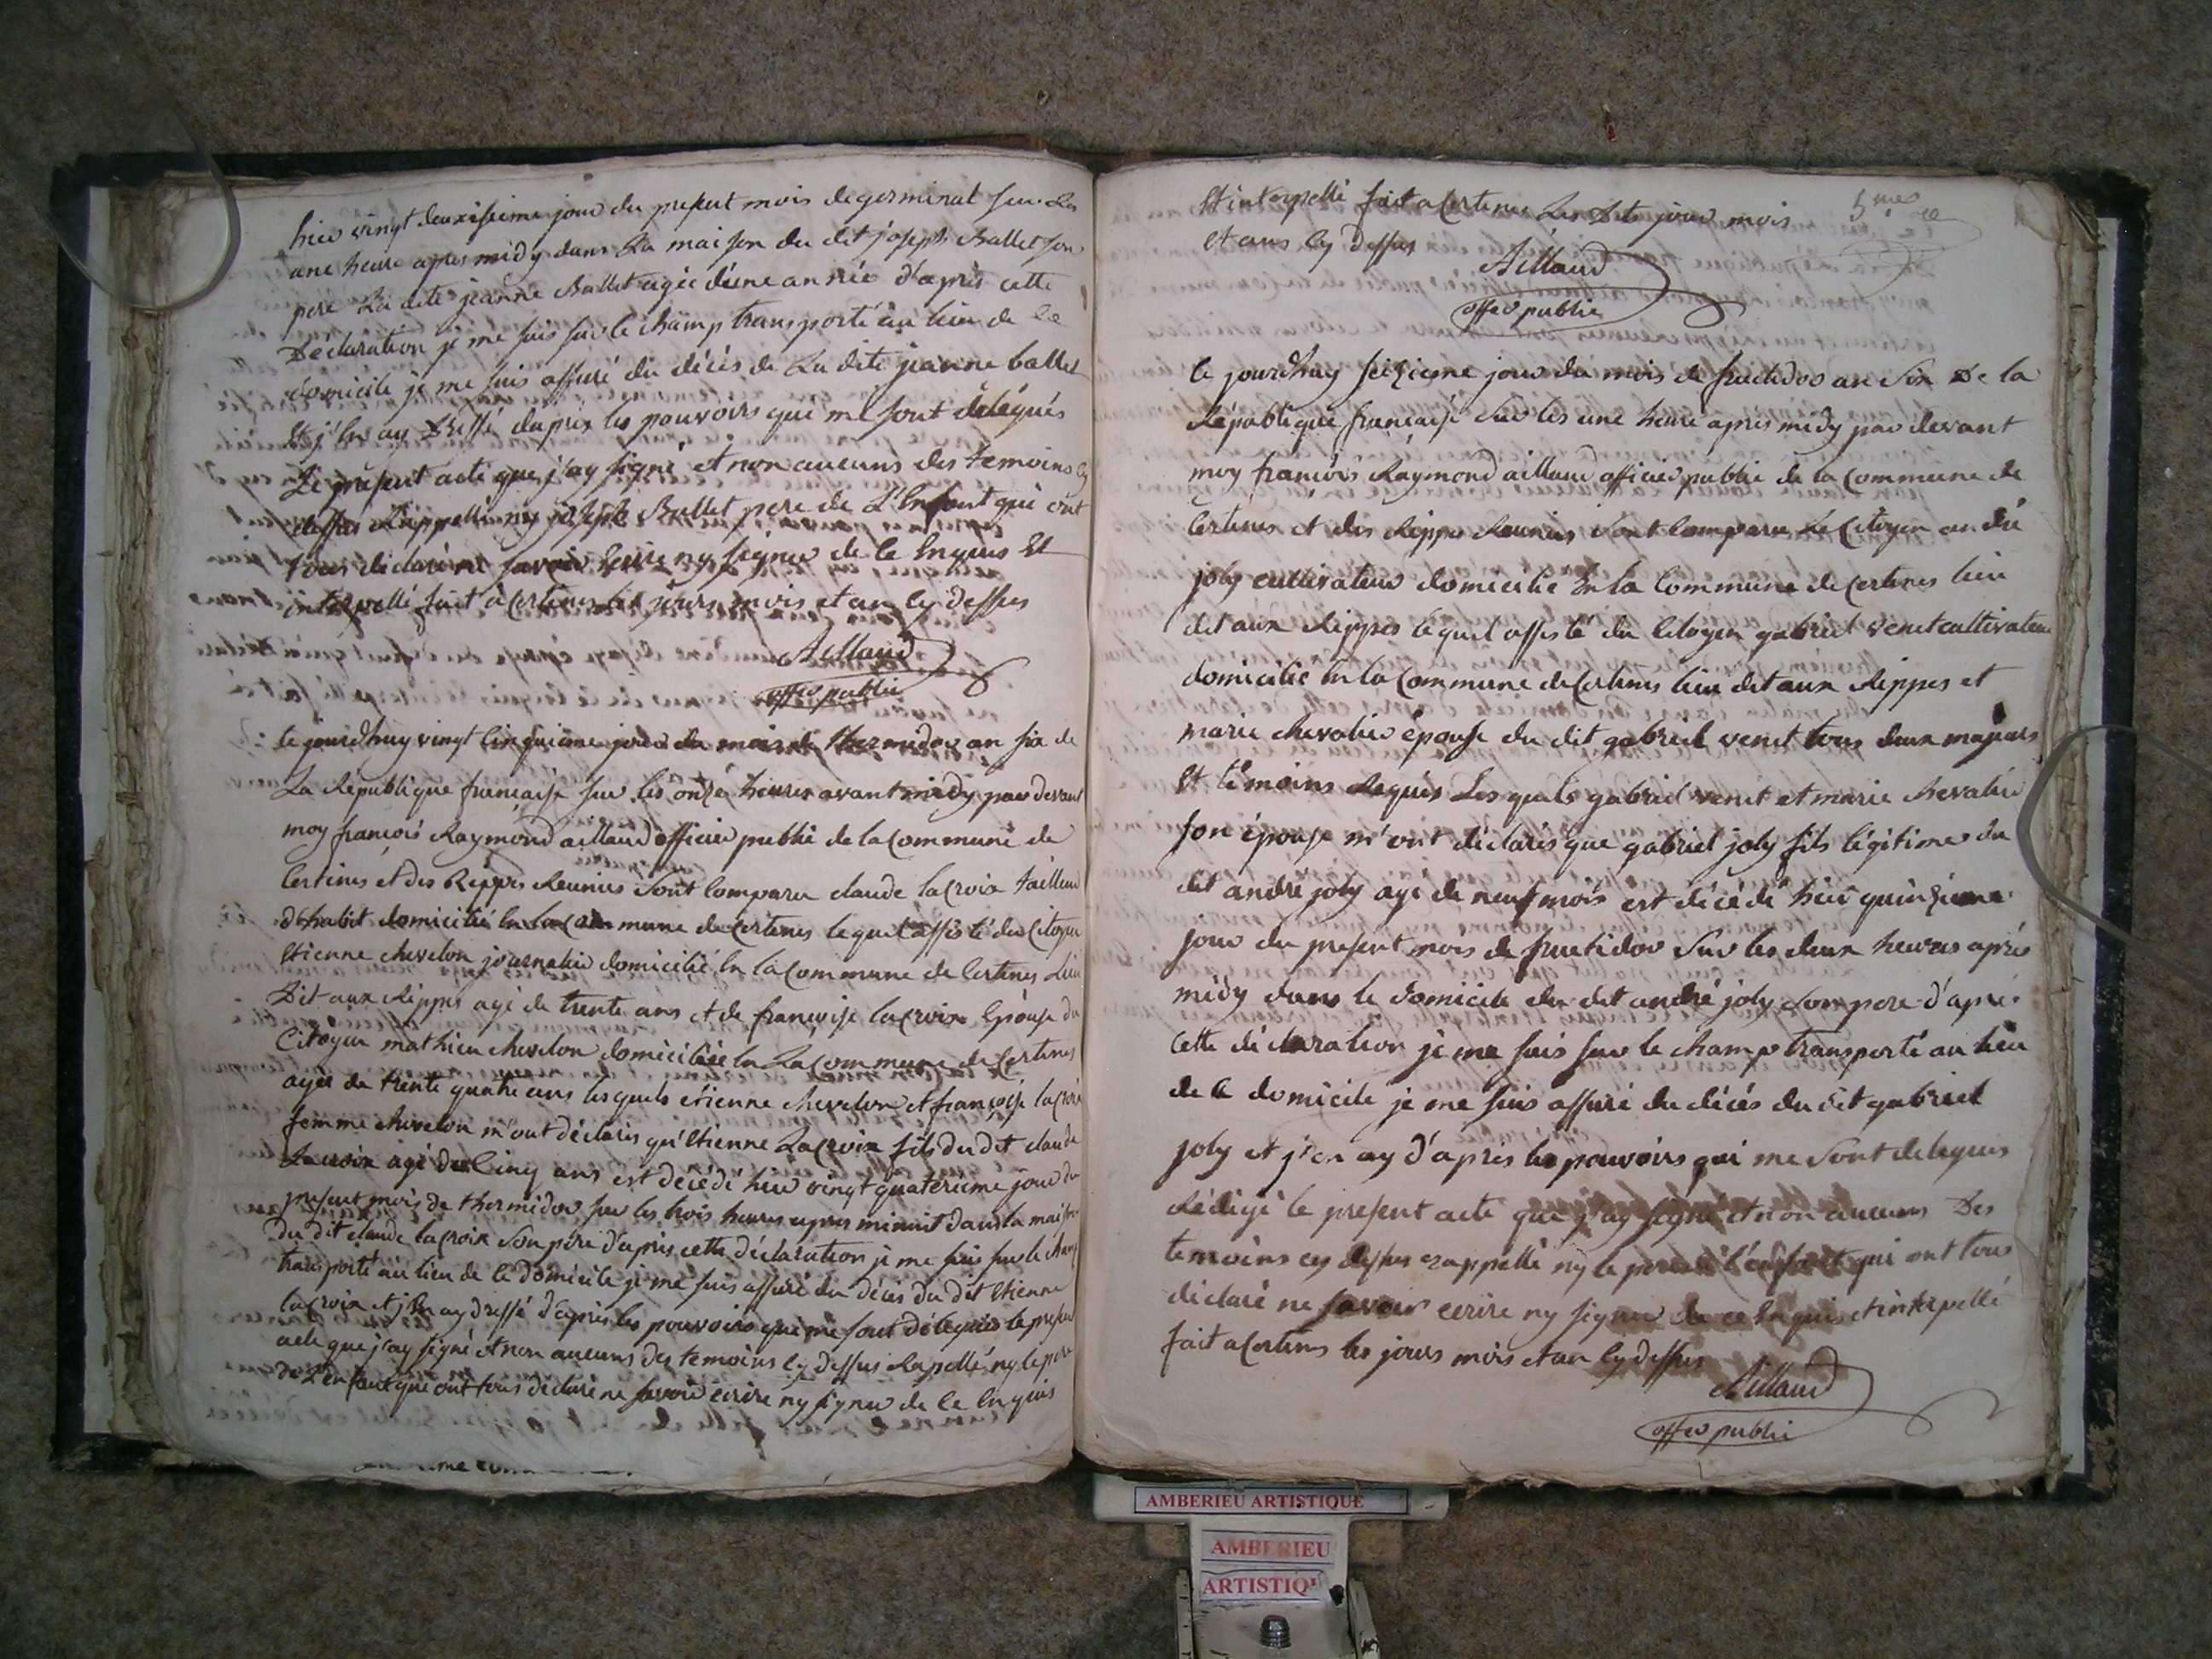 hier vingt deuxisieme jour du present mois de germinal sur les
une heure apres midy dans La maison du dit joseph Ballet son
pere La dite jeanne Ballet agée d'une année d'après cette
Déclaration je me suis sur le champ transporté au lieu de ce
domicile je me suis assuré du décès de La dite jeanne ballet
Et j'En ay Dressé dapres les pouvoirs qui me sont délégués
Le présent acte que j'ay signé et non aucuns des temoins cy
dessus Rappellé ny joseph Ballet pere de L'Enfant qui ont
tous declaré ne savoir Ecrire ny signer de ce Enquis Et
interpellé fait a Certines les jours mois et an cy dessus
Aillaud
offier public
le jourdhuy vingt cinquieme jour du mois de thermidor an six de
La République française sur les onze heures avant midy par devant
moy françois Raymond aillaud officier public de la Commune de
Certines et des Rippes Reunies sont Comparu claude lacroix tailleur
d'habit domicilié En la Commune de Certines lequel assisté du Citoyen
Etienne chevelon journalier domicilié En la Commune de Certines Lieu
Dit aux Rippes agé de trente ans et de françoise lacroix Epouse du
Citoyen mathieu chevelon domiciliée En La Commune de Certines
agée de trente quatre ans lesquels étienne chevelon et françoise lacroix
femme chevelon m'ont déclarés qu'Etienne Lacroix fils du dit claude
Lacroix agé de Cinq ans est décédé hier vingt quaterieme jour du
present mois de thermidor sur les trois heures apres minuit dans la maison
du dit claude lacroix Son père d'après cette déclaration je me suis sur le champ
transporté au lieu de ce domicile je me suis assuré du décès du dit Etienne
lacroix et j'En ay dressé d'après les pouvoirs qui me sont délégués le présent
acte que j'ay signé et non aucuns des temoins cy dessus Rapellé ny le pere
de L'enfant qui ont tous declaré ne savoir écrire ny signer de ce Enquis
Et interpellé fait a Certines Les Dits jour mois
et ans cy Dessus
Aillaud
offier public
le jourdhuy seizieme jour du mois de fructidor an Six De la
République française sur les une heure apres midy par devant
moy françois Raymond aillaud officier public de la Commune de
Certines et des Rippes Reunies sont Comparu Le Citoyen andré
joly cultivateur domicilié En la Commune de Certines lieu
dit aux Rippes lequel assisté du Citoyen gabriel venet cultivateur
domicilié En la Commune de Certines lieu dit aux Rippes et
marie chevalier épouse du dit gabriel venet tous deux majeurs
Et témoins Requis Lesquels gabriel venet et marie chevalier
son épouse m'ont déclarés que gabriel joly fils légitime du
dit andré joly agé de neuf mois est décédé hier quinzieme
jour du present mois de fructidor Sur les deux heures après
midy dans le domicile du dit andré joly Son pere d'après
Cette déclaration je me suis sur le champ transporté au lieu
de ce domicile je me suis assuré du décès du dit gabriel
joly et j'en ay d'apres les pouvoirs qui me sont delegués
Rédigé le present acte que j'ay signé et non aucuns Des
temoins cy dessus rappellé ny le pere de l'enfant qui ont tous
déclaré ne savoir ecrire ny signer de ce Enquis et interpellé
fait a Certines les jours mois et an cy dessus
Aillaud
offier public
AMBERIEU ARTISTIQUE
AMBERIEU
ARTISTIQ